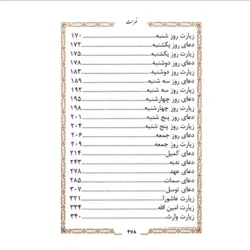 فهرست
زیارت روز شنبه ... ۱۷۰
دعای روز یکشنبه ... ۱۷۲
زیارت روز یکشنبه ... ۱۷۵
دعای روز دوشنبه ... ۱۷۸
زیارت روز دوشنبه ... ۱۸۳
دعای روز سه شنبه ... ۱۸۹
زیارت روز سه شنبه ... ۱۹۲
دعای روز چهارشنبه ... ۱۹۵
زیارت روز چهارشنبه ... ۱۹۸
دعای روز پنج شنبه ... ۲۰۱
زیارت روز پنج شنبه ... ۲۰۴
دعای روز جمعه ... ۲۰۶
زیارت روز جمعه ... ۲۰۹
دعای کمیل ... ۲۱۴
دعای ندبه ... ۲۴۳
دعای عهد ... ۲۷۸
دعای سمات ... ۲۸۵
دعای توسل ... ۳۰۷
زیارت عاشورا ... ۳۲۱
زیارت امین الله ... ۳۳۴
زیارت وارث ... ۳۴۰
۴۷۸